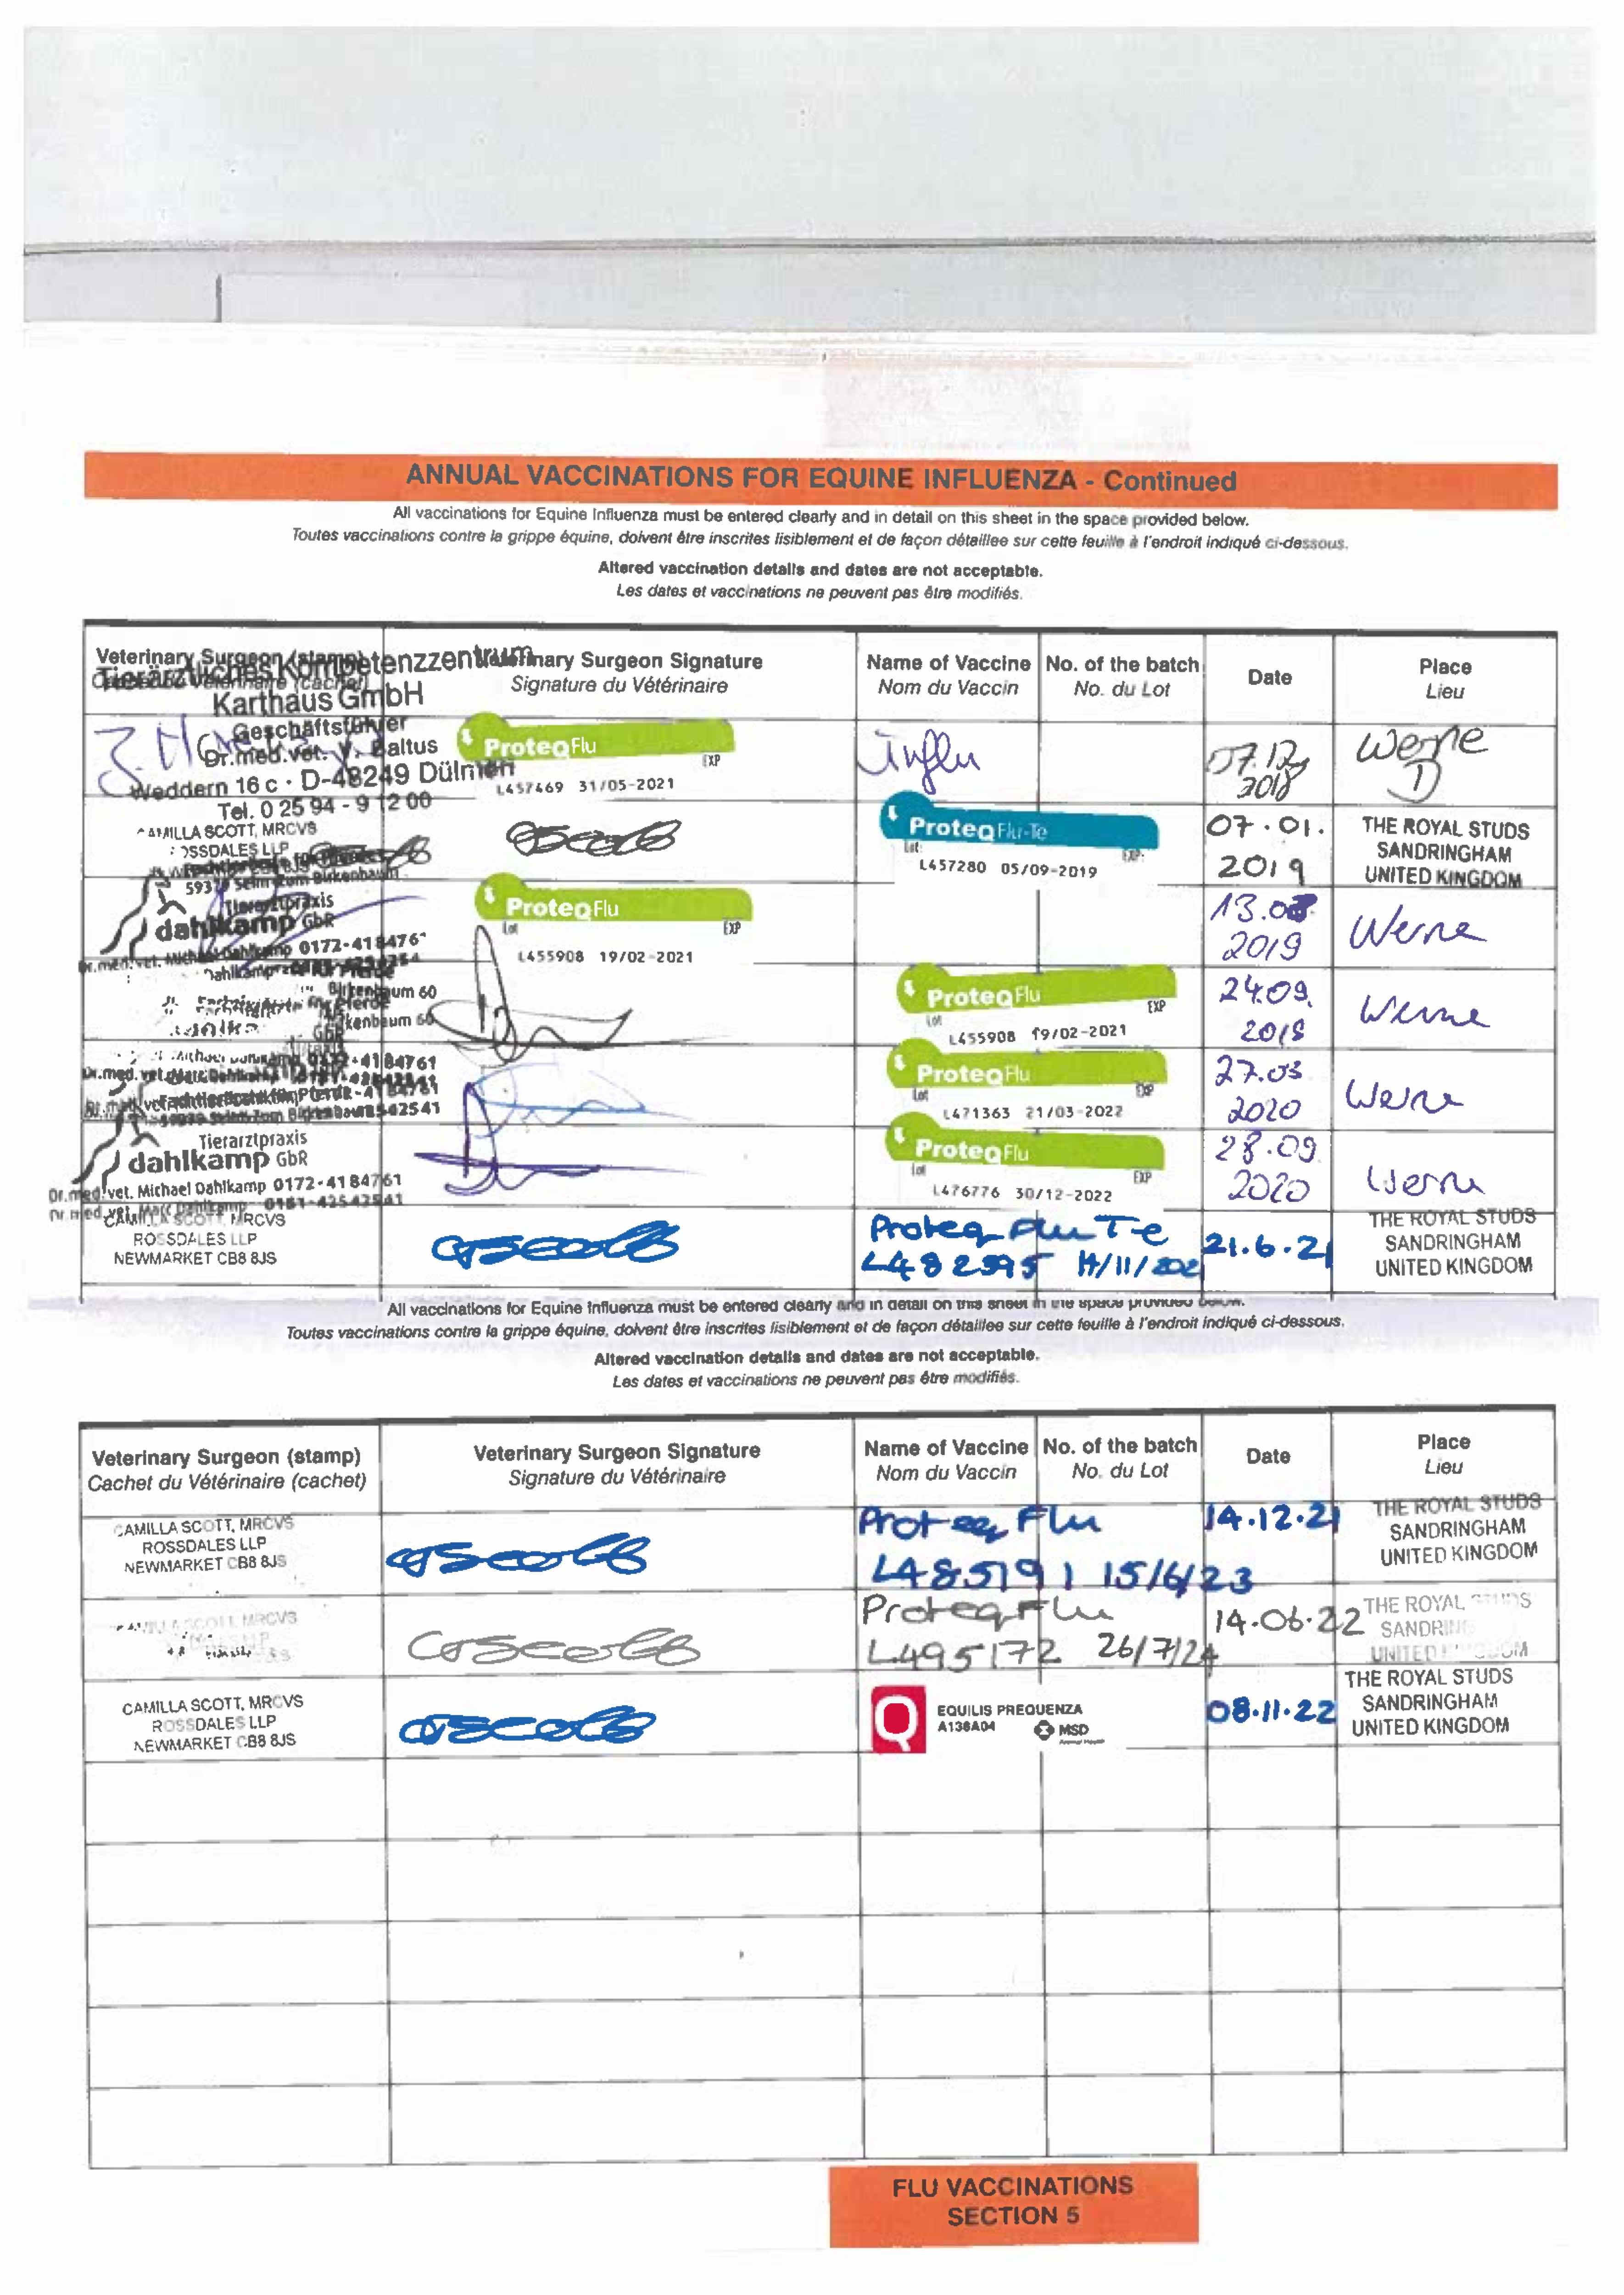 ANNUAL VACCINATIONS FOR EQUINE INFLUENZA - Continued
All vaccinations for Equine Influenza must be entered clearly and in detail on this sheet in the space provided below.
Toutes vaccinations contre la grippe équine, doivent être inscrites lisiblement et de façon détaillee sur cette feuille à l'endroit indiqué ci-dessous.
Altered vaccination details and dates are not acceptable.
Les dates et vaccinations ne peuvent pas être modifiés.
Veterinary Surgeon (stamp)
Cachet du Vétérinaire (cachet)
Veterinary Surgeon Signature
Signature du Vétérinaire
Name of Vaccine
Nom du Vaccin
No. of the batch
No. du Lot
Date
Place
Lieu
Tierärztliches Kompetenzzentrum
Karthaus GmbH
Geschäftsführer
Dr.med.vet. V. Baltus
Weddern 16 c · D-48249 Dülmen
Tel. 0 25 94 - 9 12 00
ProteqFlu
EXP
L457469 31/05-2021
Influ
07.12
2018
Werne
D
CAMILLA SCOTT, MRCVS
ROSSDALES LLP
ProteqFlu-Te
Lot:
EXP:
L457280 05/09-2019
07.01.
2019
THE ROYAL STUDS
SANDRINGHAM
UNITED KINGDOM
Tierarztpraxis
dahlkamp GbR
Dr.med.vet. Michael Dahlkamp 0172-418476
ProteqFlu
Lot
EXP
L455908 19/02-2021
13.08.
2019
Werne
Birkenbaum 60
ProteqFlu
Lot
EXP
L455908 19/02-2021
24.09.
2018
Werne
ProteqFlu
Lot
EXP
L471363 21/03-2022
27.03
2020
Werne
Tierarztpraxis
dahlkamp GbR
Dr.med.vet. Michael Dahlkamp 0172-4184761
Dr.med.vet. Marc Dahlkamp 0151-42542541
ProteqFlu
Lot
EXP
L476776 30/12-2022
28.09.
2020
Werne
CAMILLA SCOTT, MRCVS
ROSSDALES LLP
NEWMARKET CB8 8JS
Proteq Flu Te
L482595
21.6.21
THE ROYAL STUDS
SANDRINGHAM
UNITED KINGDOM
All vaccinations for Equine Influenza must be entered clearly and in detail on this sheet in the space provided below.
Toutes vaccinations contre la grippe équine, doivent être inscrites lisiblement et de façon détaillee sur cette feuille à l'endroit indiqué ci-dessous.
Altered vaccination details and dates are not acceptable.
Les dates et vaccinations ne peuvent pas être modifiés.
Veterinary Surgeon (stamp)
Cachet du Vétérinaire (cachet)
Veterinary Surgeon Signature
Signature du Vétérinaire
Name of Vaccine
Nom du Vaccin
No. of the batch
No. du Lot
Date
Place
Lieu
CAMILLA SCOTT, MRCVS
ROSSDALES LLP
NEWMARKET CB8 8JS
Proteq Flu
L485191 15/6/23
14.12.21
THE ROYAL STUDS
SANDRINGHAM
UNITED KINGDOM
CAMILLA SCOTT, MRCVS
Proteq Flu
L495172 26/7/24
14.06.22
THE ROYAL STUDS
SANDRING
UNITED KINGDOM
CAMILLA SCOTT, MRCVS
ROSSDALES LLP
NEWMARKET CB8 8JS
Q
EQUILIS PREQUENZA
A138A04
MSD
Animal Health
08.11.22
THE ROYAL STUDS
SANDRINGHAM
UNITED KINGDOM
FLU VACCINATIONS
SECTION 5